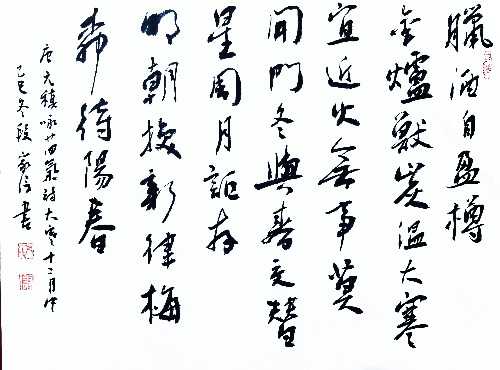 臘酒自盈樽
金爐獸炭温大寒
宜近火無事莫
開門冬與春交替
星周月詎存
明朝換新律梅
柳待陽春
唐元稹咏廿四氣詩大寒十二月中
乙巳冬段家信書